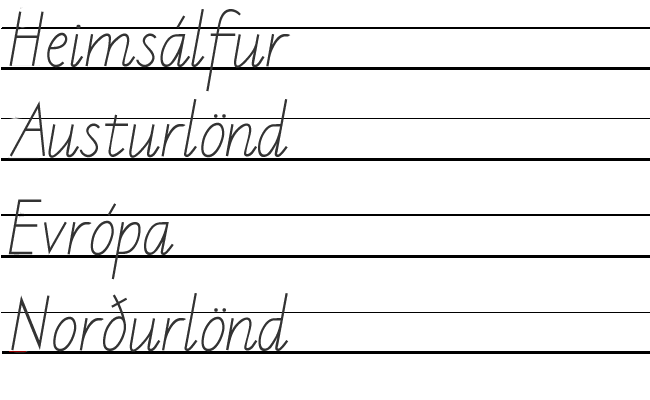 Heimsálfur
Austurlönd
Evrópa
Norðurlönd